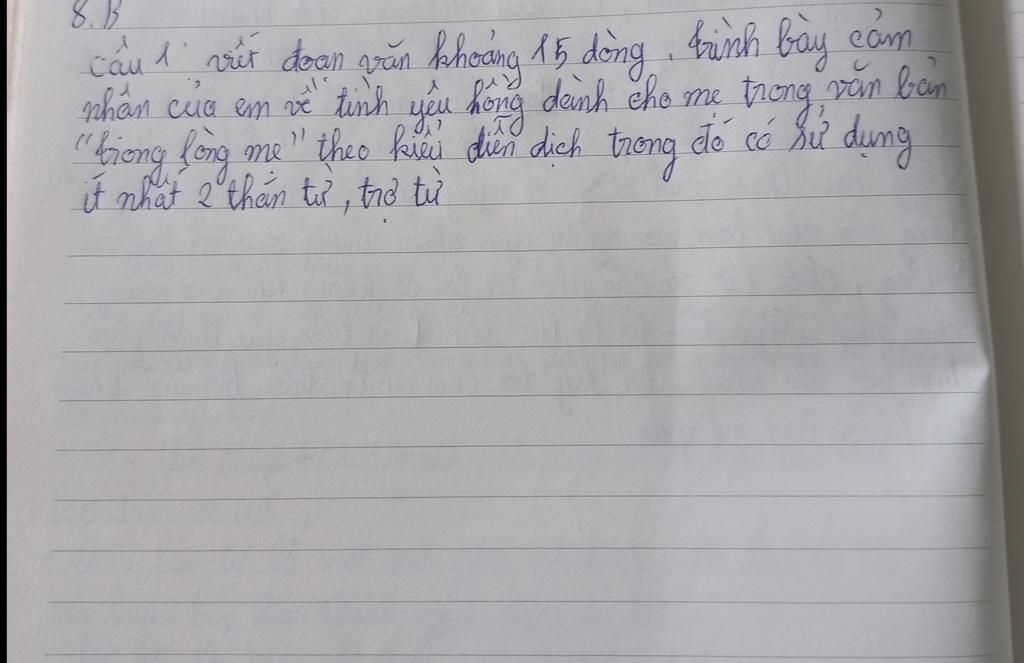 8. B
câu 1 viết đoạn văn khoảng 15 dòng. trình bày cảm
nhân của em về tình yêu hồng dành cho mẹ trong văn bản
"trong lòng mẹ" theo kiểu diễn dịch trong đó có sử dụng
ít nhất 2 thán từ, trợ từ